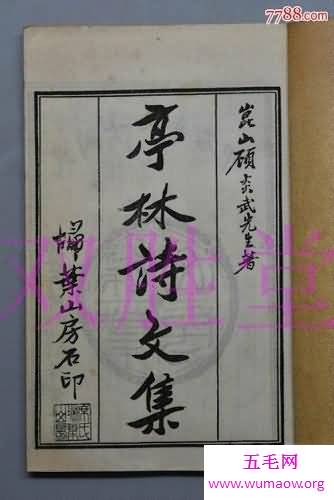 7788.com
崑山顾炎武先生著
亭林詩文集
掃葉山房石印
双胜堂
五毛网
www.wumaow.org